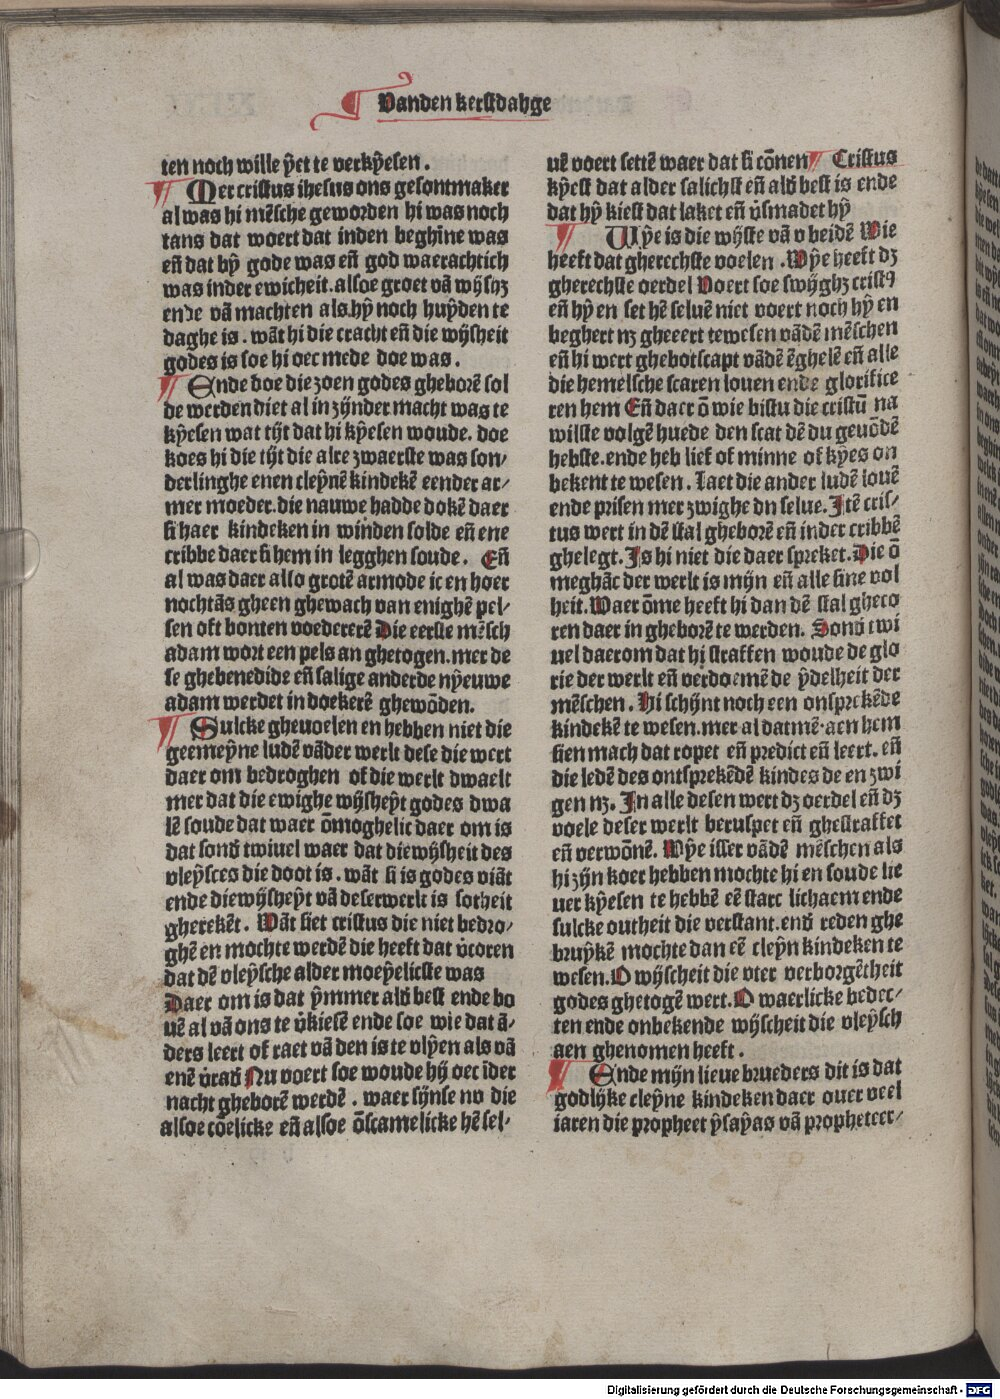 Vanden kerstdahge
ten noch wille ÿet te verkÿesen.
Mer cristus ihesus ons gesontmaker
al was hi mēsche geworden hi was noch
tans dat woert dat inden beghīne was
eñ dat bÿ gode was eñ god waerachtich
was inder ewicheit. alsoe groet vā wÿsꝫ
ende vā machten als hÿ noch huÿden te
daghe is. wāt hi die cracht eñ die wÿsheit
godes is soe hi oec mede doe was.
Ende doe die zoen godes gheborē sol
de werden diet al in zÿnder macht was te
kÿesen wat tÿt dat hi kÿesen woude. doe
koes hi die tÿt die alre zwaerste was son/
derlinghe enen cleÿnē kindekē eender ar/
mer moeder. die nauwe hadde dokē daer
si haer kindeken in winden solde eñ ene
cribbe daer si hem in legghen soude. Eñ
al was daer also grotē armode ic en hoer
nochtās gheen ghewach van enighē pel/
sen oft bonten voedererē Die eerste mēsch
adam wort een pels an ghetogen. mer de
se ghebenedide eñ salige anderde nÿeuwe
adam werdet in doekerē ghewōden.
Sulcke gheuoelen en hebben niet die
geemeÿne ludē vāder werlt dese die wert
daer om bedroghen of die werlt dwaelt
mer dat die ewighe wÿsheÿt godes dwa
lē soude dat waer ōmoghelic daer om is
dat sonđ twiuel waer dat die wÿsheit des
vleÿsces die doot is. wāt si is godes viāt
ende die wÿsheÿt vā deser werlt is sotheit
gherekēt. Wāt siet cristus die niet bedro/
ghē en mochte werdē die heeft dat v̓coren
dat dē vleÿsche alder moeÿelicste was
Daer om is dat ÿmmer alđ best ende bo
uē al vā ons te v̓kiesē ende soe wie dat ā/
ders leert of raet vā den is te vlÿen als vā
enē v̓rađ Nu voert soe woude hÿ oec īder
nacht gheborē werdē. waer sÿnse nv die
alsoe cōelicke eñ alsoe ōscamelicke hē sel/
uē voert settē waer dat si cōnen Cristus
kÿest dat alder salichst eñ alđ best is ende
dat hÿ kiest dat laket eñ v̓smadet hÿ
Wÿe is die wÿste vā v beidē Wie
heeft dat gherechste voelen. Wÿe heeft dꝫ
gherechste oerdel Voert soe swÿghꝫ cristꝰ
eñ hÿ en set hē seluē niet voert noch hÿ en
beghert nꝫ gheeert tewesen vādē mēschen
eñ hi wert ghebotscapt vādē ēghelē eñ alle
die hemelsche scaren louen ende glorifice
ren hem Eñ daer ō wie bistu die cristū na
wilste volgē huede den scat dē du geuōdē
hebste. ende heb lief of minne of kÿes on
bekent te wesen. Laet die ander ludē louē
ende prisen mer zwighe dn selue. Itē cris/
tus wert in dē stal gheborē eñ inder cribbē
ghelegt. Is hi niet die daer spreket. Die ō
meghāc der werlt is mÿn eñ alle sine vol
heit. Waer ōme heeft hi dan dē stal gheco
ren daer in gheborē te werden. Sonđ twi
uel daerom dat hj straffen woude de glo
rie der werlt eñ verdoemē de ÿdelheit der
mēschen. Hi schÿnt noch een onsprekēde
kindekē te wesen. mer al datmē aen hem
sien mach dat ropet eñ predict eñ leert. eñ
die ledē des ontsprekēdē kindes de en zwi
gen nꝫ. In alle desen wert dꝫ oerdel eñ dꝫ
voele deser werlt beruspet eñ ghestraffet
eñ verwōnē. Wÿe isser vādē mēschen als
hi zÿn koer hebben mochte hi en soude lie
uer kÿesen te hebbē eē starc lichaem ende
sulcke outheit die verstant. enđ reden ghe
bruÿkē mochte dan eē cleÿn kindeken te
wesen. O wÿscheit die vter verborgētheit
godes ghetogē wert. O waerlicke bedec/
ten ende onbekende wÿscheit die vleÿsch
aen ghenomen heeft.
Ende mÿn lieue brueders dit is dat
godlÿke cleÿne kindeken daer ouer veel
iaren die propheet ÿsaÿas vā propheteer/
Digitalisierung gefördert durch die Deutsche Forschungsgemeinschaft - DFG